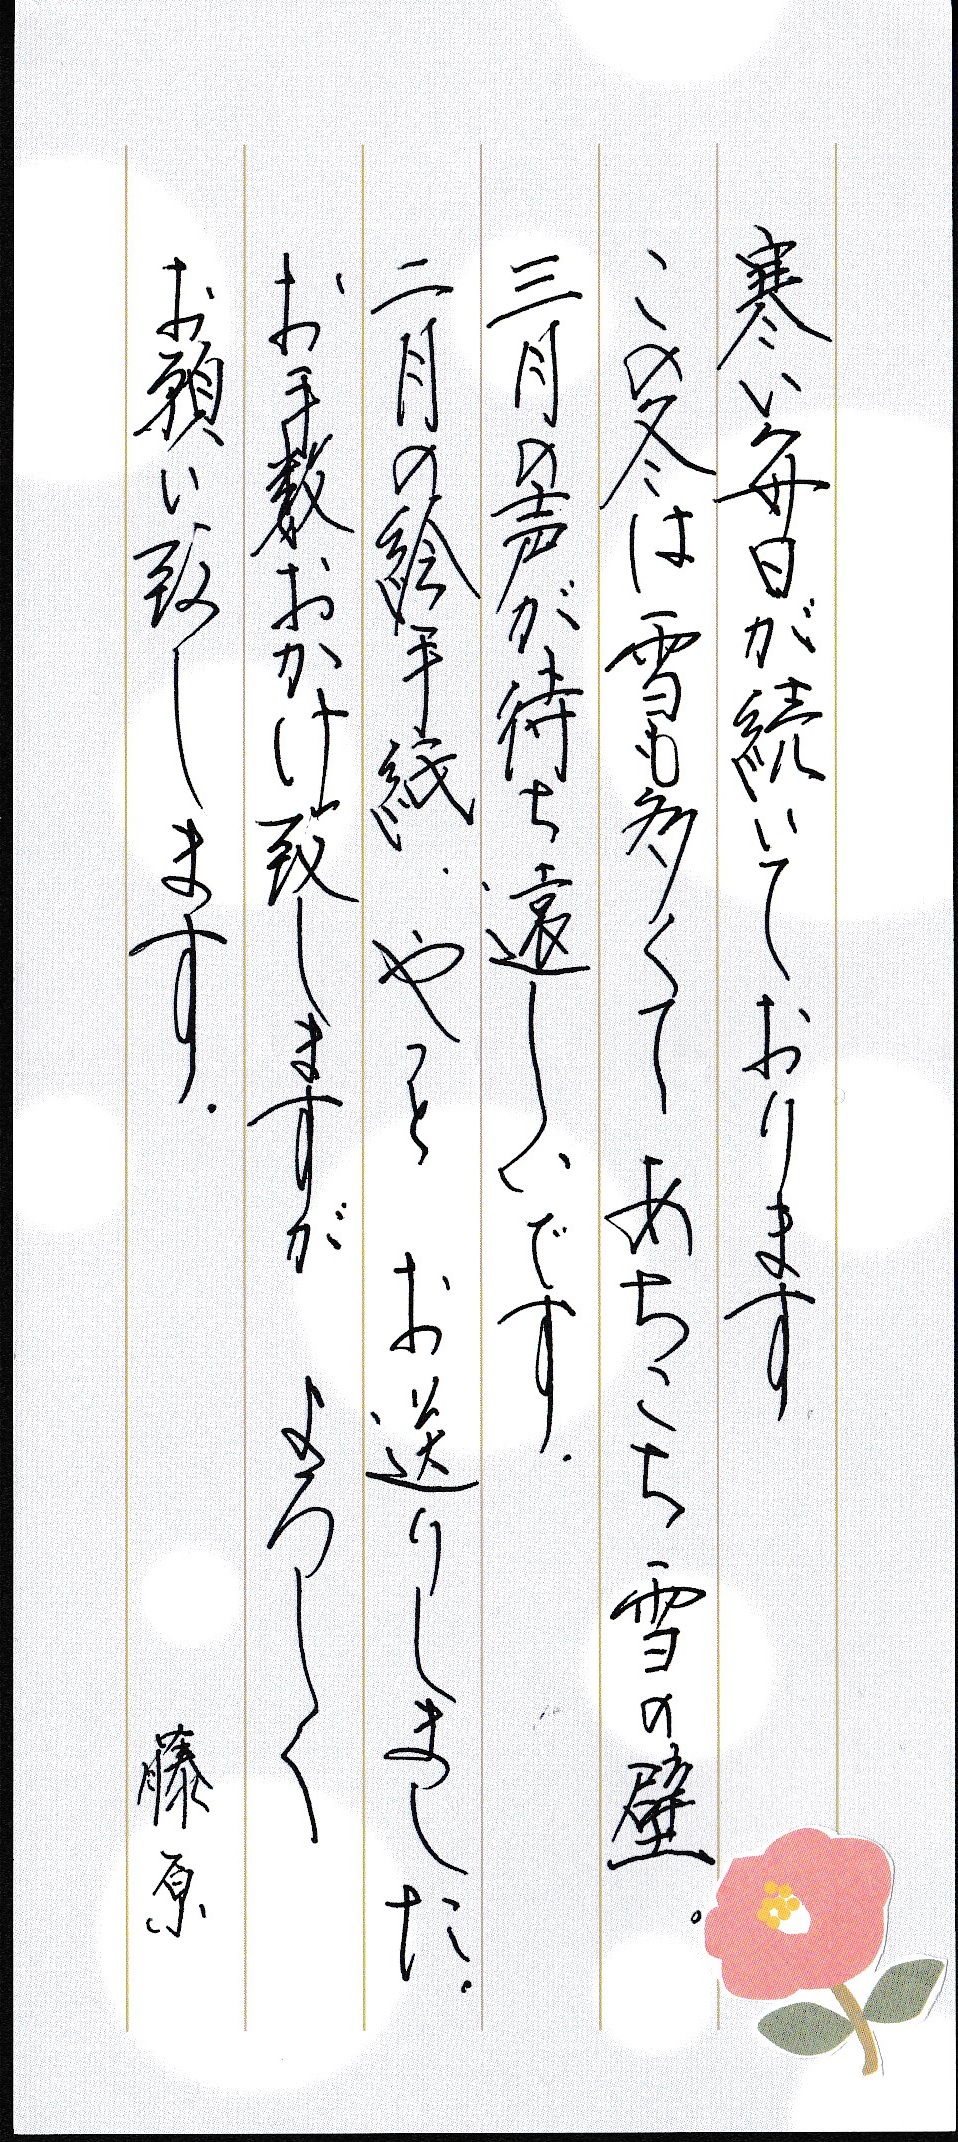 寒い毎日が続いております
この冬は雪も多くて あちこち 雪の壁。
三月の声が待ち遠しいです.
二月の絵手紙. やっと お送りしました.
お手数おかけ致しますが よろしく
お願い致します.
藤原